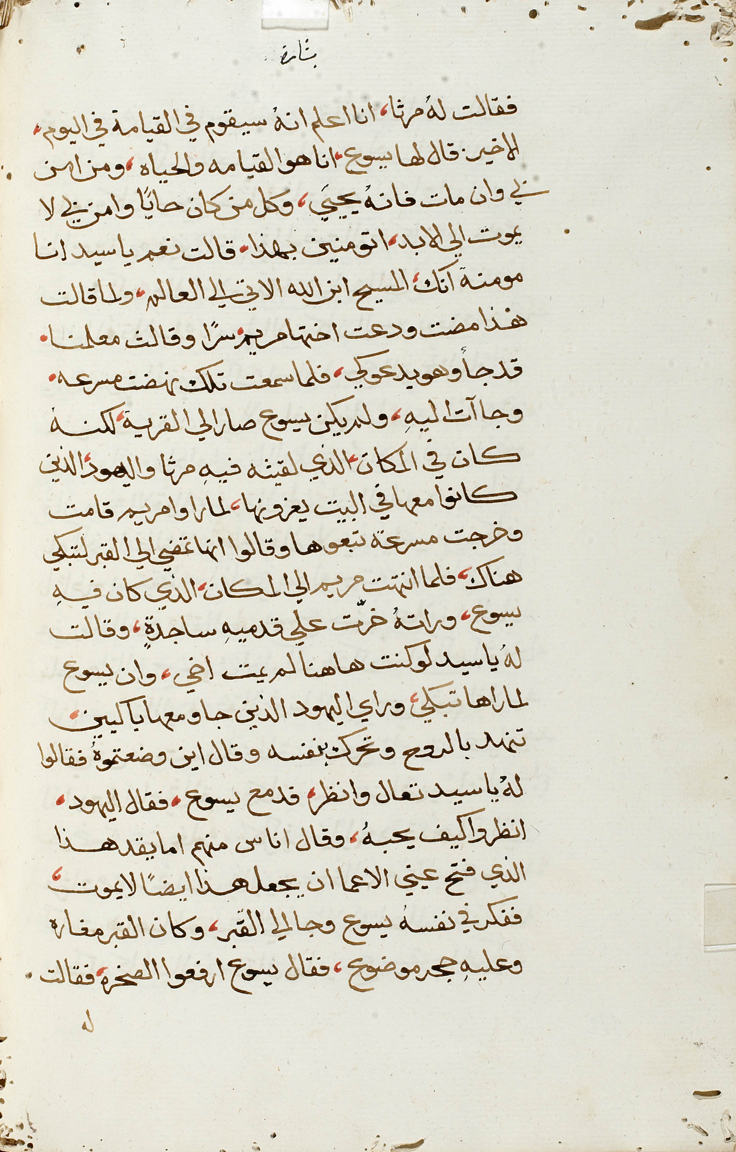 بشارة
فقالت لهُ مرثا، انا اعلم انهُ سيقوم في القيامة في اليوم،
الاخير. قال لها يسوع، انا هو القيامه والحياه، ومن امن
بي وان مات فانهُ يحيَي، وكل من كان حايًا وامن بي لا
يموت الي الابد، اتومنين بهذا، قالت نعم يا سيد انا
مومنة انك، المسيح ابن الله الاتي الي العالم، ولما قالت
هذا مضت ودعت اختها مريم سرًا وقالت معلمنا،
قد جأ وهو يدعوكي، فلما سمعت تلك نهضت مسرعه،
وجاآت اليهِ، ولم يكن يسوع صار الي القرية، لكنهُ
كان في المكان، الذي لقيته فيهِ مرثا واليهود، الذين
كانوا معها في البيت يعزونها، لما راوا مريم قامت
وخرجت مسرعة تبعوها وقالوا انها تمضي الي القبر لتبكي
هناك، فلما انتهت مريم الي المكان، الذي كان فيهِ
يسوع، وراتهُ خرّت علي قدميهِ ساجدةٍ، وقالت
لهُ يا سيد لو كنت هاهنا لم يمت اخي، وان يسوع
لما راها تبكي، وراي اليهود الذين جاو معها باكيين،
تنهد بالروح وتحرك بنفسه وقال اين وضعتموهُ فقالوا
لهُ يا سيد تعال وانظر، قدمع يسوع، فقال اليهود،
انظروا كيف يحبهُ، وقال اناس منهم اما يقد هذا
الذي فتح عيني الاعما ان يجعل هذا ايضًا لا يموت،
ففكر في نفسهُ يسوع وجا الي القبر، وكان القبر مغاره
وعليهِ حجر موضوع، فقال يسوع ارفعوا الصخره، فقالت
له